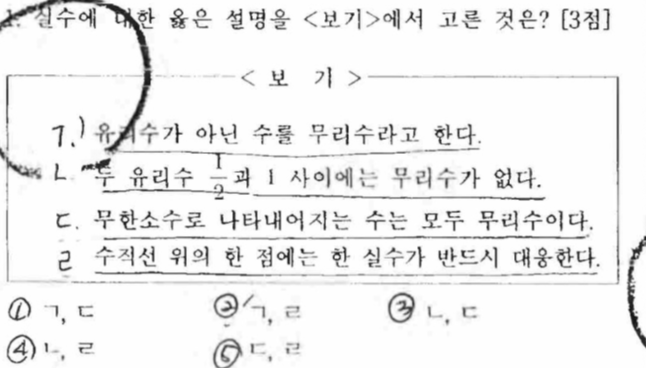 1. 실수에 대한 옳은 설명을 <보기>에서 고른 것은? [3점]
< 보 기 >
ㄱ. 유리수가 아닌 수를 무리수라고 한다.
ㄴ. 두 유리수 1/2과 1 사이에는 무리수가 없다.
ㄷ. 무한소수로 나타내어지는 수는 모두 무리수이다.
ㄹ 수직선 위의 한 점에는 한 실수가 반드시 대응한다.
① ㄱ, ㄷ ② ㄱ, ㄹ ③ ㄴ, ㄷ
④ ㄴ, ㄹ ⑤ ㄷ, ㄹ